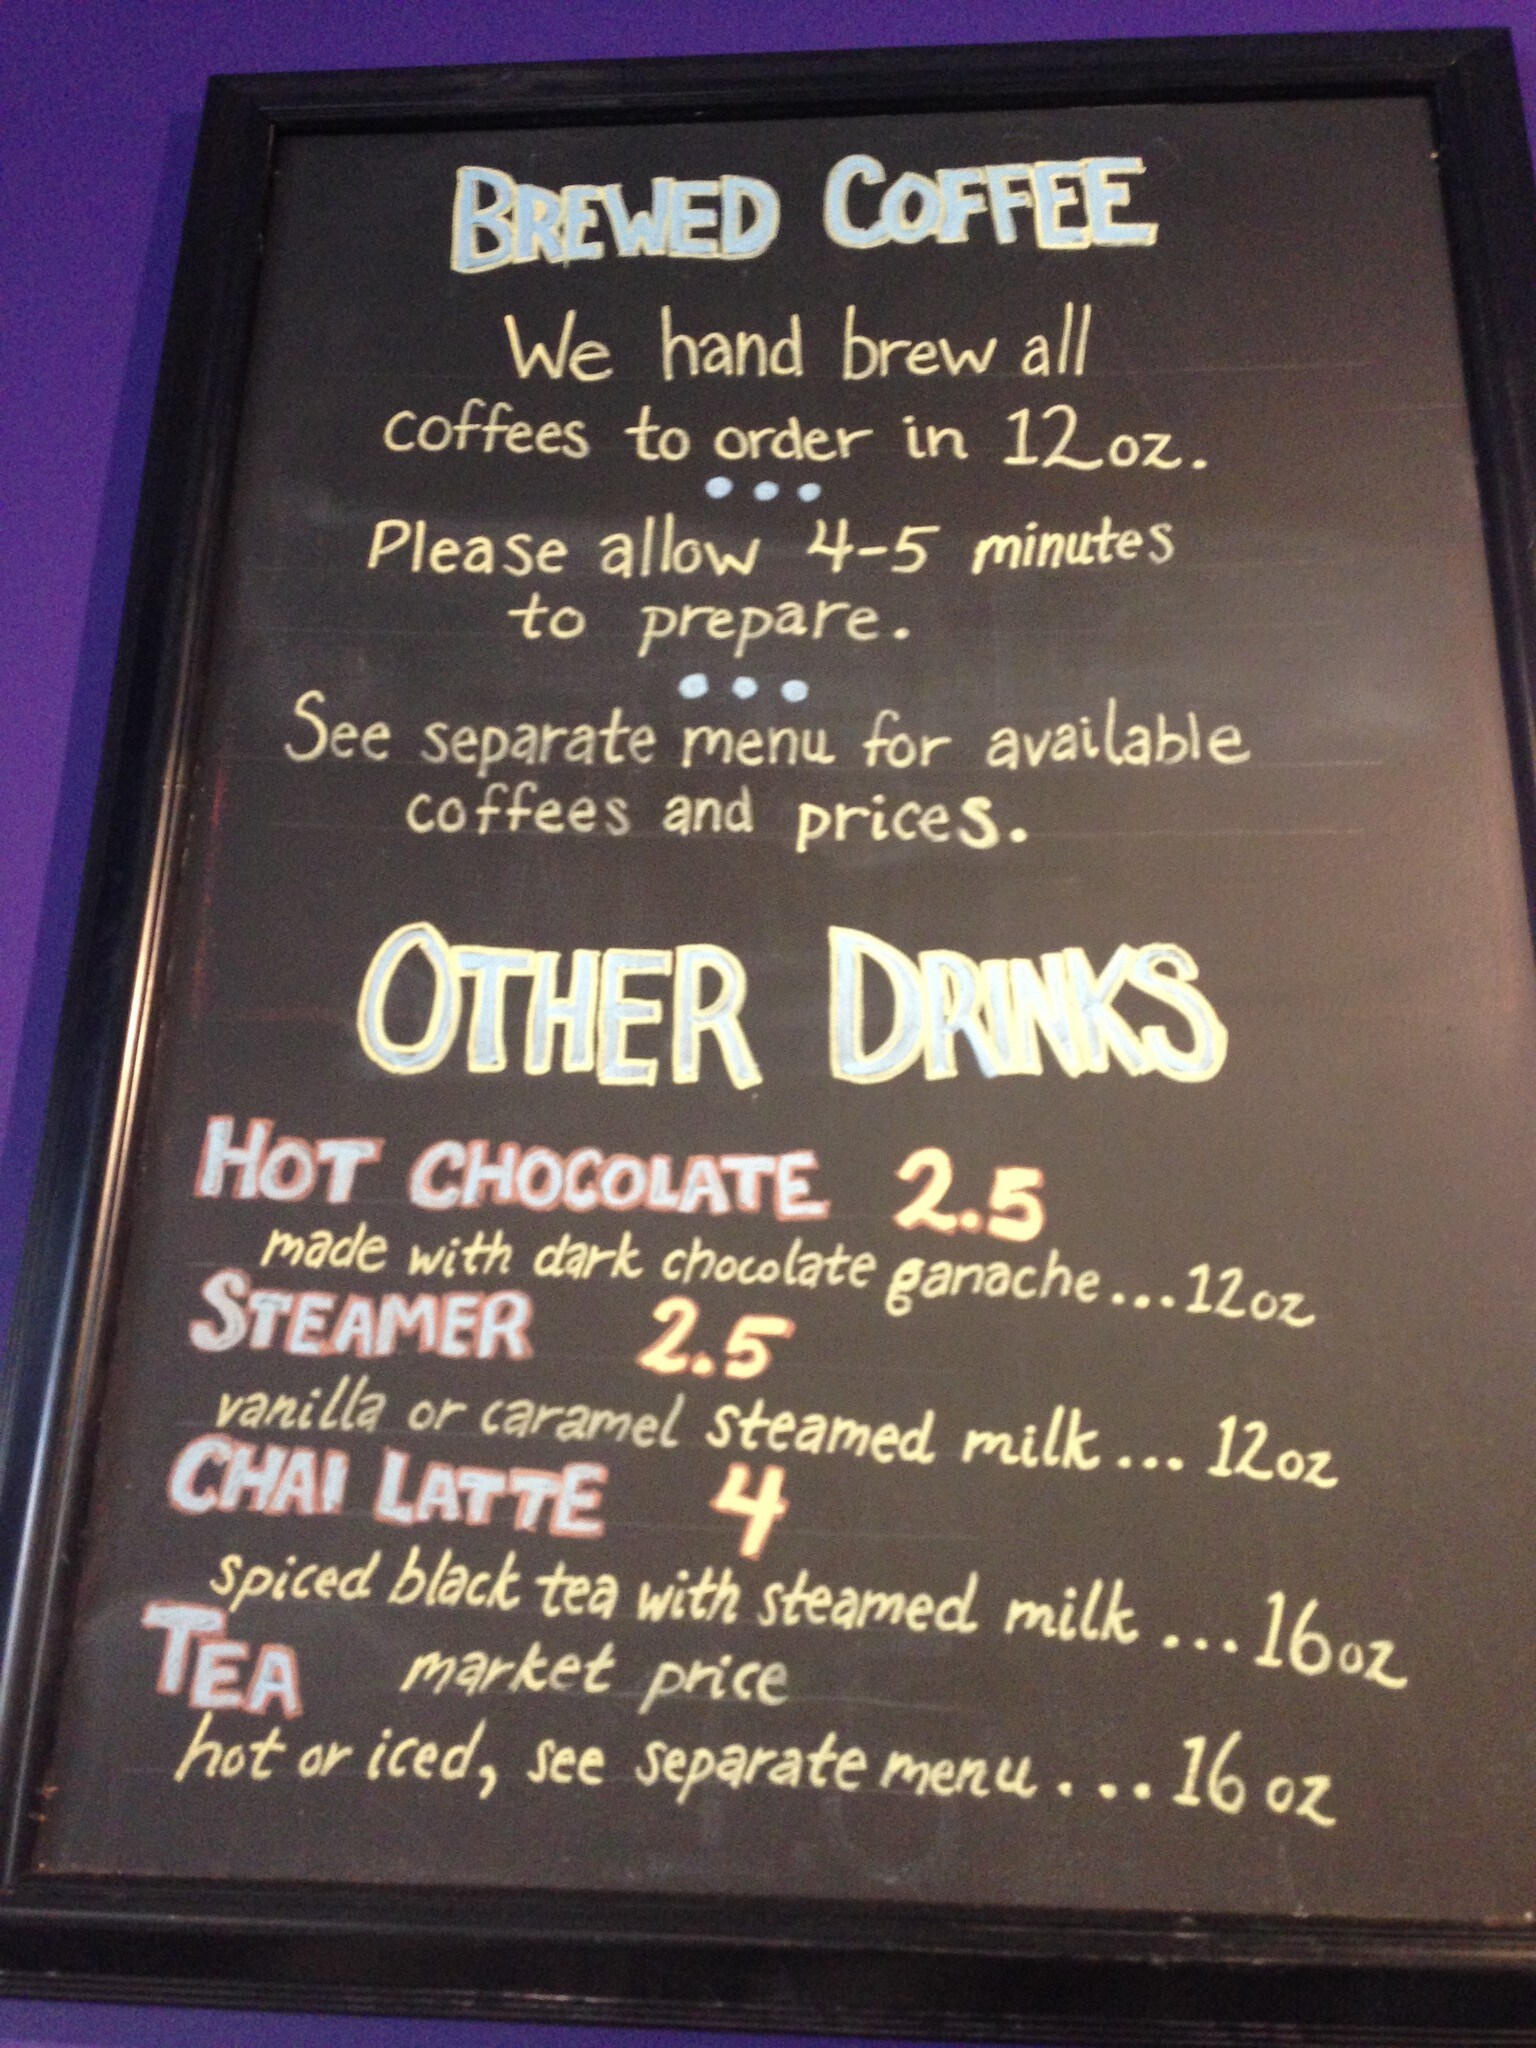 BREWED COFFEE
We hand brew all
coffees to order in 12oz.
•••
Please allow 4-5 minutes
to prepare.
•••
See separate menu for available
coffees and prices.
OTHER DRINKS
HOT CHOCOLATE 2.5
made with dark chocolate ganache...12oz
STEAMER 2.5
vanilla or caramel steamed milk... 12oz
CHAI LATTE 4
spiced black tea with steamed milk ...16oz
TEA market price
hot or iced, see separate menu....16 oz